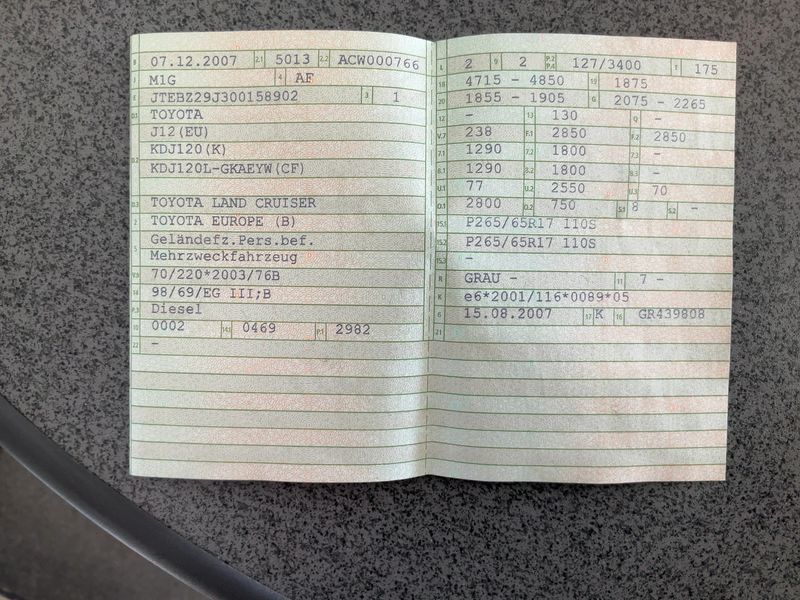 B 07.12.2007 2.1 5013 2.2 ACW000766
J M1G 4 AF
E JTEBZ29J300158902 3 1
D.1 TOYOTA
J12(EU)
D.2 KDJ120(K)
KDJ120L-GKAEYW(CF)
D.3 TOYOTA LAND CRUISER
2 TOYOTA EUROPE (B)
5 Geländefz.Pers.bef.
Mehrzweckfahrzeug
V.9 70/220*2003/76B
14 98/69/EG III;B
P.3 Diesel
10 0002 14.1 0469 P.1 2982
22 -
L 2 9 2 P.2 P.4 127/3400 T 175
18 4715 - 4850 19 1875
20 1855 - 1905 G 2075 - 2265
12 - 13 130 Q -
V.7 238 F.1 2850 F.2 2850
7.1 1290 7.2 1800 7.3 -
8.1 1290 8.2 1800 8.3 -
U.1 77 U.2 2550 U.3 70
O.1 2800 O.2 750 S.1 8 S.2 -
15.1 P265/65R17 110S
15.2 P265/65R17 110S
15.3 -
R GRAU - 11 7 -
K e6*2001/116*0089*05
6 15.08.2007 17 K 16 GR439808
21